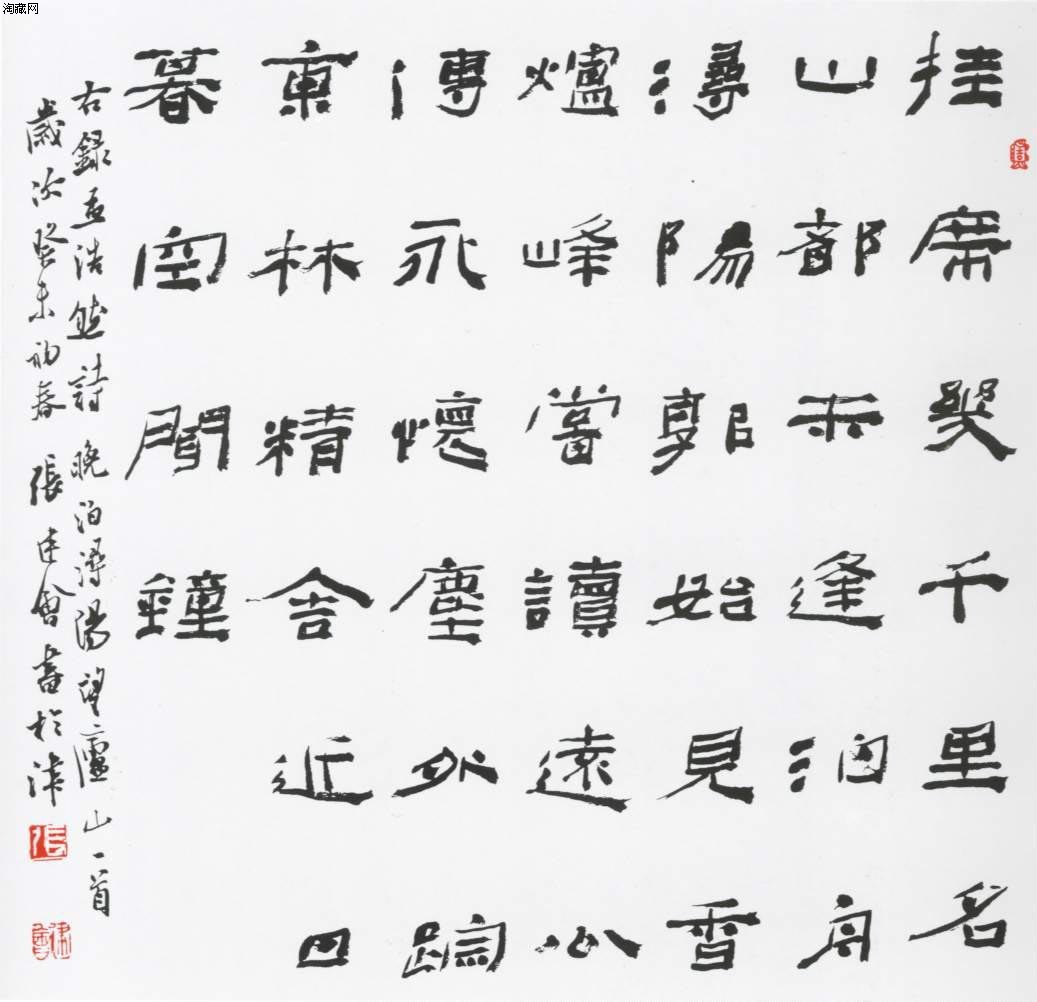 淘藏网
挂席幾千里名
山都未逢泊舟
潯陽郭始見香
爐峰嘗讀遠公
傳永懷塵外蹤
東林精舍近日
暮空聞鐘
右錄孟浩然詩晚泊潯陽望廬山一首
歲次癸未初春張建會書於津